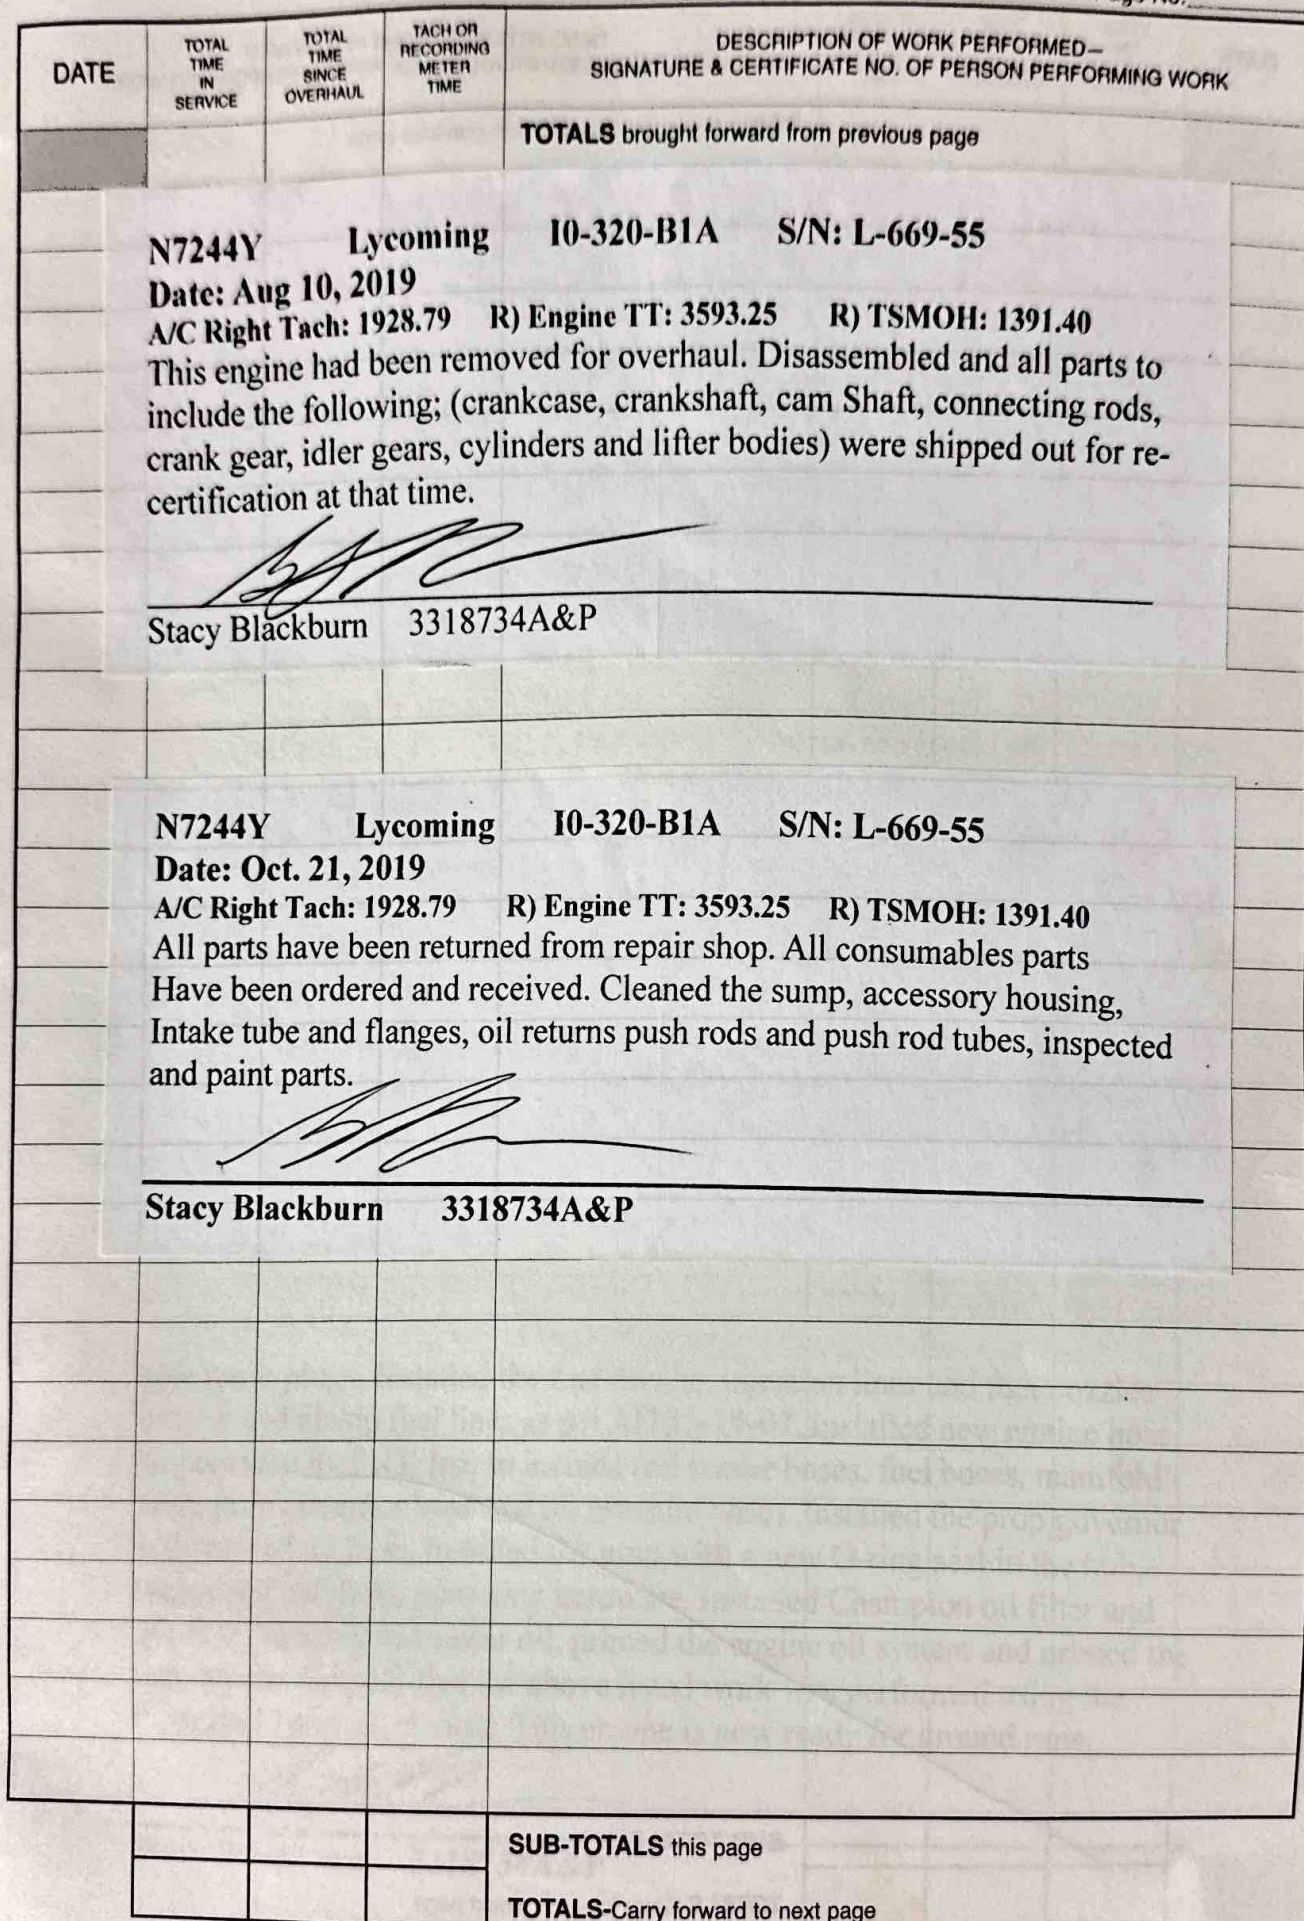 DATE
TOTAL
TIME
IN
SERVICE
TOTAL
TIME
SINCE
OVERHAUL
TACH OR
RECORDING
METER
TIME
DESCRIPTION OF WORK PERFORMED—
SIGNATURE & CERTIFICATE NO. OF PERSON PERFORMING WORK
TOTALS brought forward from previous page
N7244Y Lycoming I0-320-B1A S/N: L-669-55
Date: Aug 10, 2019
A/C Right Tach: 1928.79 R) Engine TT: 3593.25 R) TSMOH: 1391.40
This engine had been removed for overhaul. Disassembled and all parts to
include the following; (crankcase, crankshaft, cam Shaft, connecting rods,
crank gear, idler gears, cylinders and lifter bodies) were shipped out for re-
certification at that time.
Stacy Blackburn 3318734A&P
N7244Y Lycoming I0-320-B1A S/N: L-669-55
Date: Oct. 21, 2019
A/C Right Tach: 1928.79 R) Engine TT: 3593.25 R) TSMOH: 1391.40
All parts have been returned from repair shop. All consumables parts
Have been ordered and received. Cleaned the sump, accessory housing,
Intake tube and flanges, oil returns push rods and push rod tubes, inspected
and paint parts.
Stacy Blackburn 3318734A&P
SUB-TOTALS this page
TOTALS-Carry forward to next page